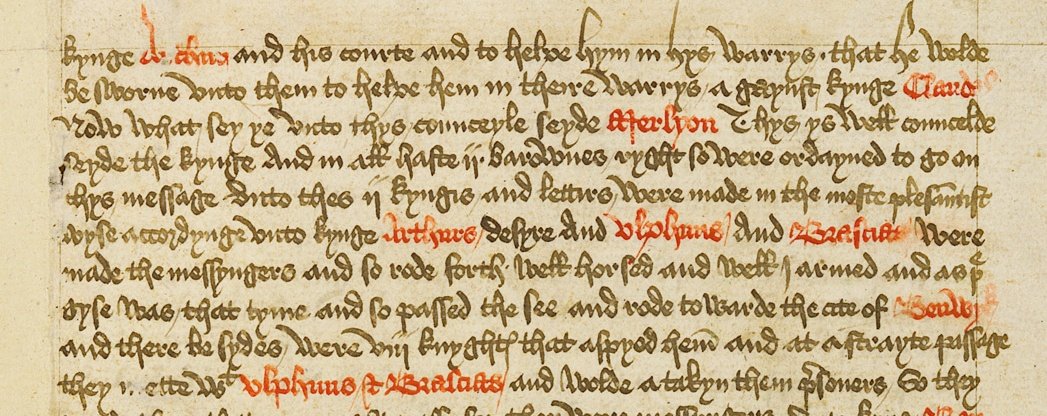 kynge Arthur and his courte and to helpe hym in hys warrys · that he wolde
be sworne vnto them to helpe hem in theire warrys a gaynst kynge Claudas
Now what sey ye vnto thys counceyle seyde Merlyon Thys ys well councelde
seyde the kynge And in all haste ij · barownes ryght so were ordayned to go on
thys message vnto thes ij kyngis and lettirs were made in the moste plesauntist
wyse accordynge vnto kynge Arthurs desyre And Vlphuns / And Brascias were
made the messyngers and so rode forth well horsed and well I armed and as þe
gyse was that tyme and so passed the see and rode towarde the cite of Benwyk
and there be sydes were viij knyghtes that aspyed hem and at a strayte passage
they mette wt Vlphuns & Brascias and wolde a takyn them presoners So they